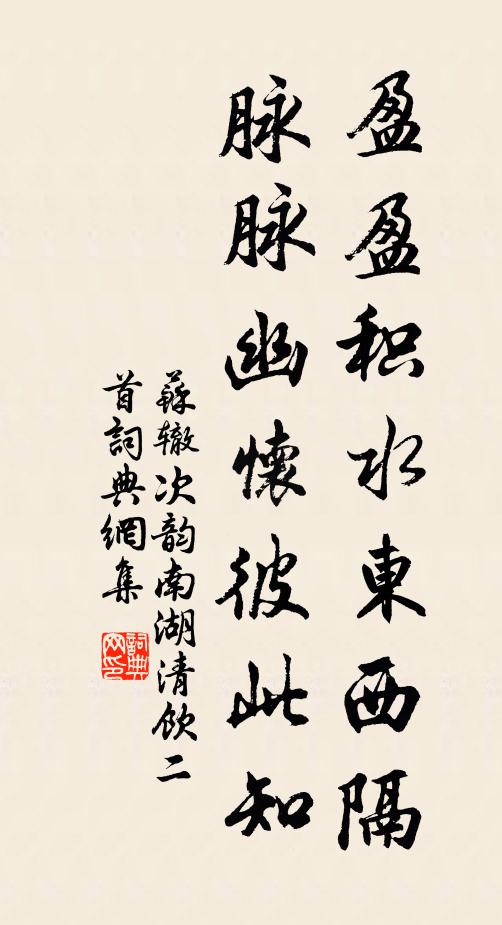 盈盈积水東西隔
脉脉幽懷彼此知
蘇辙次韵南湖清飲二
首詞典網集
詞典
网印